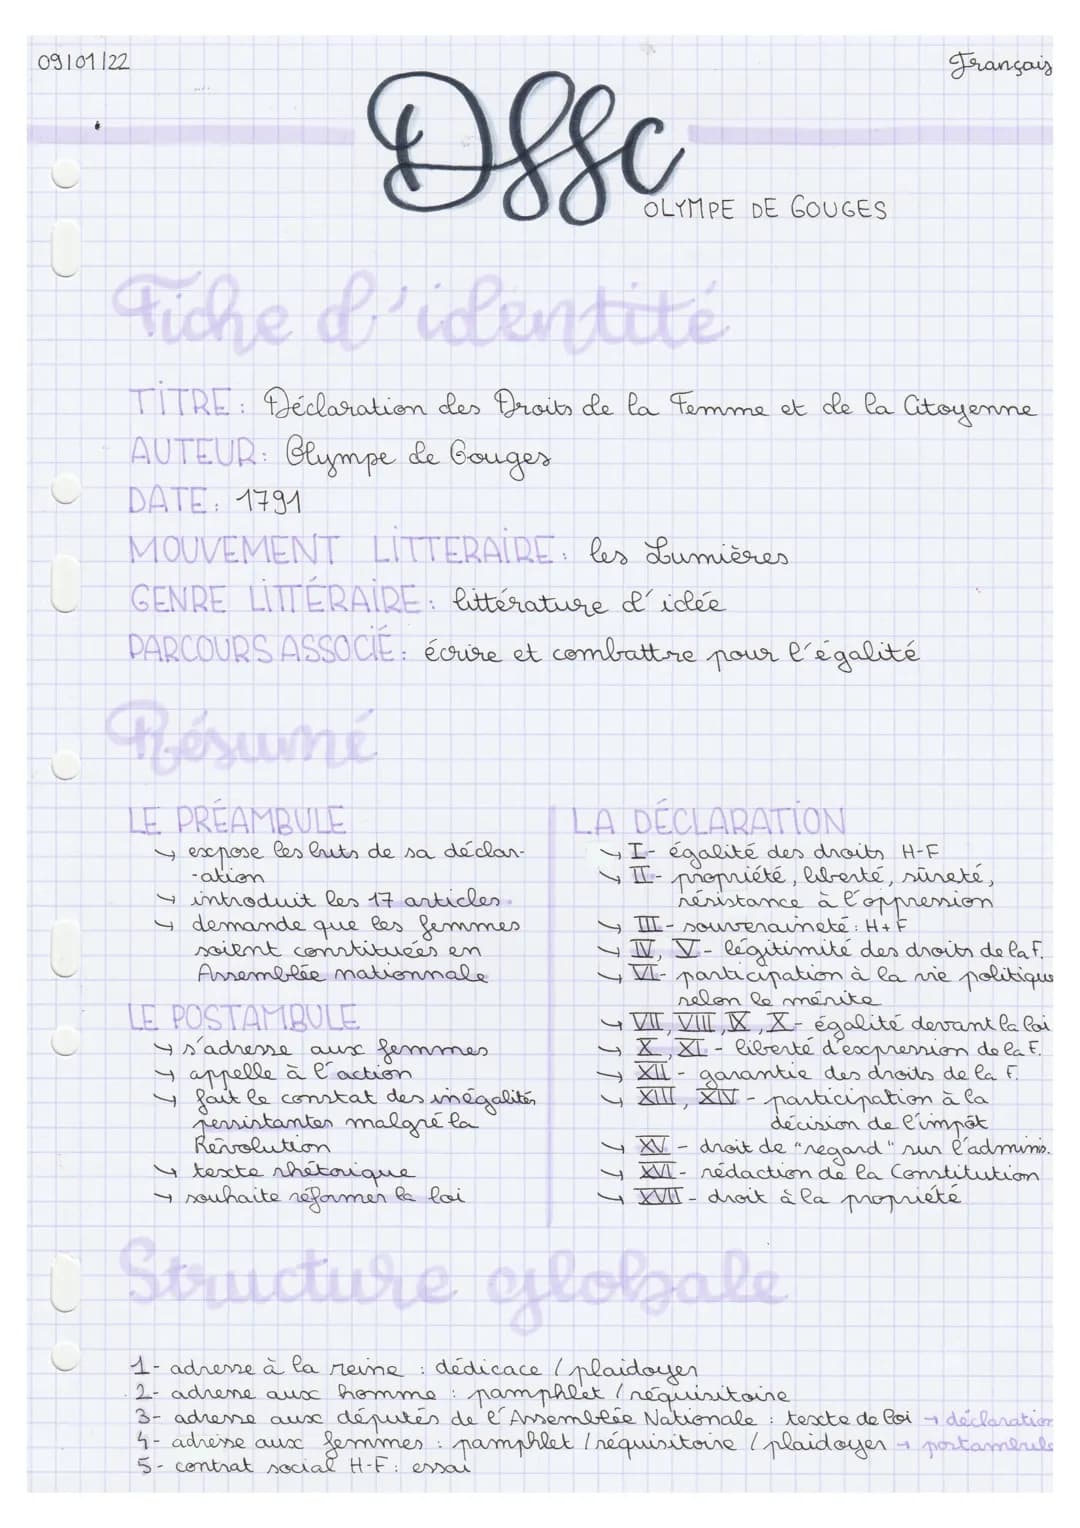 09/01/22
Français
Dffc
OLYMPE DE GOUGES
Fiche d'identité
TITRE : Déclaration des Droits de la Femme et de la Citoyenne
AUTEUR : Olympe de Gouges
DATE : 1791
MOUVEMENT LITTERAIRE : les Lumières
GENRE LITTÉRAIRE : littérature d'idée
PARCOURS ASSOCIÉ : écrire et combattre pour l'égalité
Résumé
LE PRÉAMBULE
↳ expose les buts de sa déclar-
-ation
↳ introduit les 17 articles
↳ demande que les femmes
soient constituées en
Assemblée nationnale
LE POSTAMBULE
↳ s'adresse aux femmes
↳ appelle à l'action
↳ fait le constat des inégalités
persistantes malgré la
Révolution
↳ texte rhétorique
↳ souhaite réformer la loi
LA DÉCLARATION
↳ I - égalité des droits H-F
↳ II - propriété, liberté, sûreté,
résistance à l'oppression
↳ III - souveraineté : H+F
↳ IV, V - légitimité des droits de la F.
↳ VI - participation à la vie politique
selon le mérite
↳ VII, VIII, IX, X - égalité devant la loi
↳ X, XI - liberté d'expression de la F.
↳ XII - garantie des droits de la F.
↳ XIII, XIV - participation à la
décision de l'impôt
↳ XV - droit de "regard" sur l'adminis.
↳ XVI - rédaction de la Constitution
↳ XVII - droit à la propriété
Structure globale
1- adresse à la reine : dédicace / plaidoyer
2- adresse aux homme : pamphlet / réquisitoire
3- adresse aux députés de l'Assemblée Nationale : texte de loi → déclaration
4- adresse aux femmes : pamphlet / réquisitoire / plaidoyer → postambule
5- contrat social H-F : essai